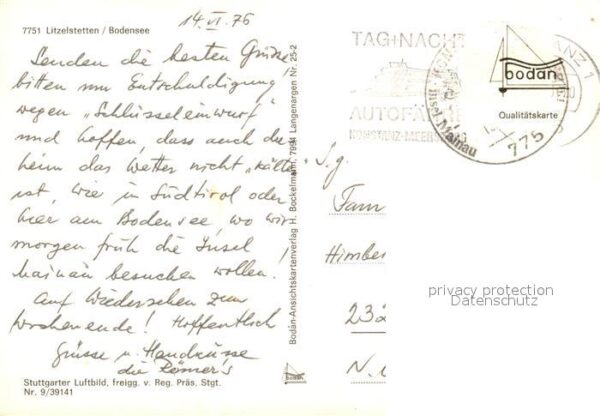 7751 Litzelstetten / Bodensee
14.VI.76
Senden die besten Grüsse
bitten um Entschuldigung
wegen „Schlüsseleinwurf"
und hoffen, dass auch da-
heim das Wetter nicht „kälter"
ist, wie in Südtirol oder
hier am Bodensee, wo wir
morgen früh die Insel
Mainau besuchen wollen.
Auf Wiedersehen zum
Wochenende! Hoffentlich
Grüsse u. Handküsse
die Römer's
Stuttgarter Luftbild, freigg. v. Reg. Präs. Stgt.
Nr. 9/39141
Bodan-Ansichtskartenverlag H. Bockelmann, 7994 Langenargen Nr. 25-2
bodan
TAG+NACHT
AUTOFÄHRE
KONSTANZ-MEERSB
KONSTANZ
Insel Mainau
775
NZ 1
bodan
Qualitätskarte
S.g.
Fam
Himber
232
N.
privacy protection
Datenschutz